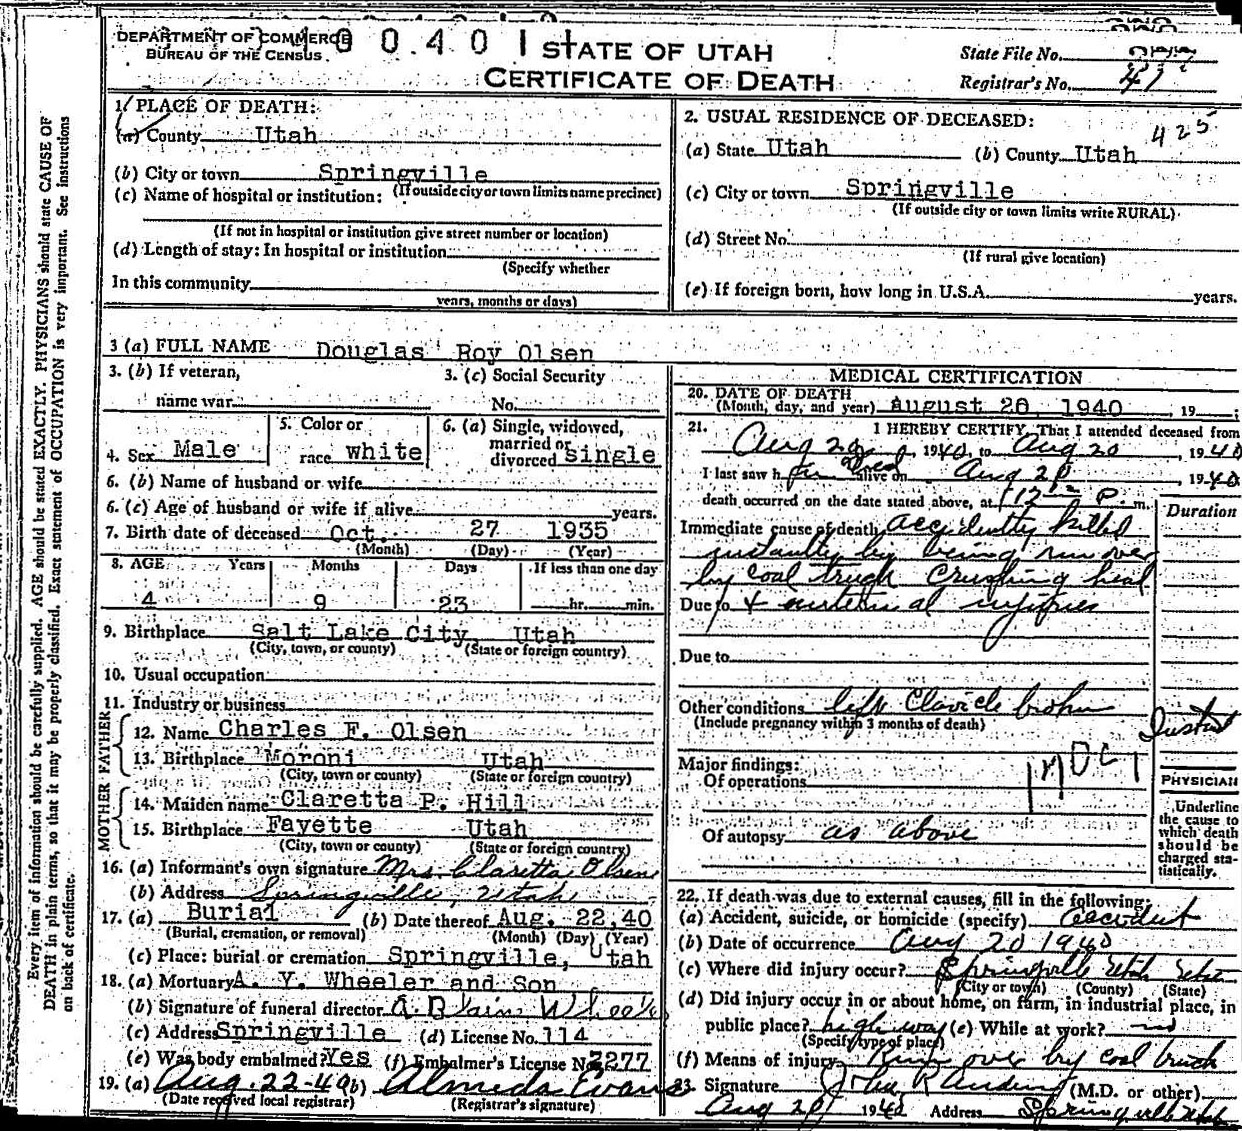 DEPARTMENT OF COMMERCE
BUREAU OF THE CENSUS
STATE OF UTAH
CERTIFICATE OF DEATH
State File No.
Registrar's No. 41
Every item of information should be carefully supplied. AGE should be stated EXACTLY. PHYSICIANS should state CAUSE OF
DEATH in plain terms, so that it may be properly classified. Exact statement of OCCUPATION is very important. See instructions
on back of certificate.
1. PLACE OF DEATH:
(a) County Utah
(b) City or town Springville
(If outside city or town limits name precinct)
(c) Name of hospital or institution:
(If not in hospital or institution give street number or location)
(d) Length of stay: In hospital or institution
(Specify whether
In this community
years, months or days)
2. USUAL RESIDENCE OF DECEASED:
425
(a) State Utah (b) County Utah
(c) City or town Springville
(If outside city or town limits write RURAL)
(d) Street No.
(If rural give location)
(e) If foreign born, how long in U.S.A. years.
3 (a) FULL NAME Douglas Roy Olsen
3. (b) If veteran,
name war
3. (c) Social Security
No.
4. Sex Male
5. Color or
race white
6. (a) Single, widowed,
married or
divorced single
6. (b) Name of husband or wife
6. (c) Age of husband or wife if alive years.
7. Birth date of deceased Oct. 27 1935
(Month) (Day) (Year)
8. AGE Years Months Days If less than one day
4 9 23 hr. min.
9. Birthplace Salt Lake City, Utah
(City, town, or county) (State or foreign country)
10. Usual occupation
11. Industry or business
FATHER
12. Name Charles F. Olsen
13. Birthplace Moroni Utah
(City, town or county) (State or foreign country)
MOTHER
14. Maiden name Claretta P. Hill
15. Birthplace Fayette Utah
(City, town or county) (State or foreign country)
16. (a) Informant's own signature Mrs. Claretta Olsen
(b) Address Springville, Utah
17. (a) Burial (b) Date thereof Aug. 22,40
(Burial, cremation, or removal) (Month) (Day) (Year)
(c) Place: burial or cremation Springville, Utah
18. (a) Mortuary A. Y. Wheeler and Son
(b) Signature of funeral director A. Blain Wheeler
(c) Address Springville (d) License No. 114
(e) Was body embalmed? Yes (f) Embalmer's License No. 3277
19. (a) Aug. 22-40 (b) Almeda Evans
(Date received local registrar) (Registrar's signature)
MEDICAL CERTIFICATION
20. DATE OF DEATH
(Month, day, and year) August 20, 1940, 19 ;
21. I HEREBY CERTIFY, That I attended deceased from
Aug 20, 1940, to Aug 20, 1940
I last saw h alive on Aug 20, 1940
death occurred on the date stated above, at P. m.
Duration
Immediate cause of death accidently killed
instantly by being run over
by coal truck crushing head
Due to & internal injuries
Due to
Other conditions left Clavicle broken
(Include pregnancy within 3 months of death)
Major findings:
Of operations
Of autopsy as above
PHYSICIAN
Underline
the cause to
which death
should be
charged sta-
tistically.
22. If death was due to external causes, fill in the following:
(a) Accident, suicide, or homicide (specify) accident
(b) Date of occurrence Aug 20 1940
(c) Where did injury occur? Springville Utah Utah
(City or town) (County) (State)
(d) Did injury occur in or about home, on farm, in industrial place, in
public place? highway (e) While at work? no
(Specify type of place)
(f) Means of injury Run over by coal truck
23. Signature (M.D. or other)
Aug 20, 1940 Address Springville Utah